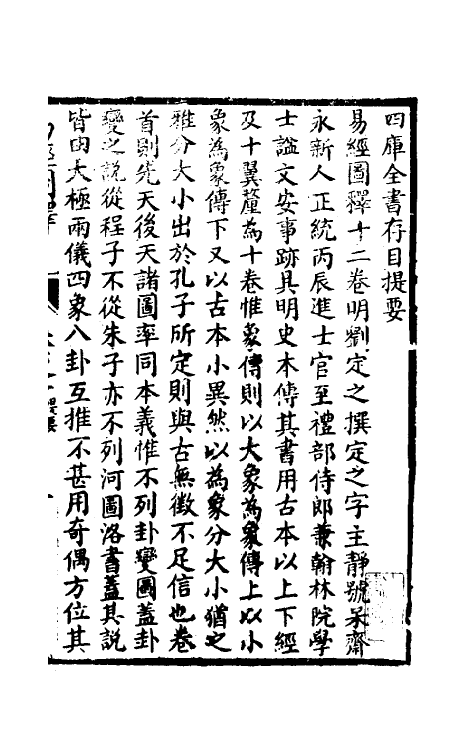 四庫全書存目提要
易經圖釋十二卷明劉定之撰定之字主靜號呆齋
永新人正統丙辰進士官至禮部侍郎兼翰林院學
士謚文安事跡具明史本傳其書用古本以上下經
及十翼釐為十卷惟彖傳則以大象為彖傳上以小
象為彖傳下又以古本小異然以為象分大小猶之
雅分大小出於孔子所定則與古無徵不足信也卷
首則先天後天諸圖率同本義惟不列卦變圖蓋卦
變之説從程子不從朱子亦不列河圖洛書蓋其説
皆由太極兩儀四象八卦互推不甚用奇偶方位其